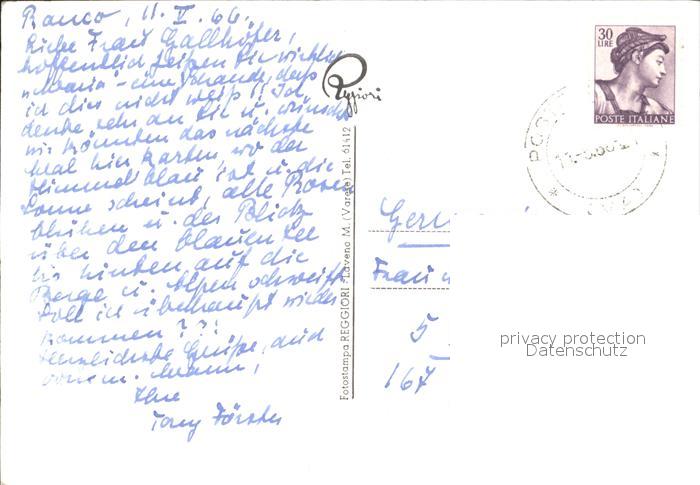 Ranco, 11. V. 66.
Liebe Frau Gallhöfer,
hoffentlich heißen Sie wirklich
"Maria" - eine Schande, daß
ich dies nicht weiß!! Ich
denke sehr an Sie u. wünscht
wir könnten das nächste
Mal hin karten, wo der
Himmel blau ist u. die
Sonne scheint, alle Rosen
blühen u. der Blick
über den blauen See
bis hinten auf die
Berge u. Alpen schweift
Soll ich überhaupt wieder
kommen??!
Herzlichste Grüße, auch
von m. Mann,
Ihre
Tony Förster
Reggiori
Fotostampa REGGIORI - Laveno M. (Varese) Tel. 61412
30
LIRE
POSTE ITALIANE
Germ
Frau
5
167
privacy protection
Datenschutz